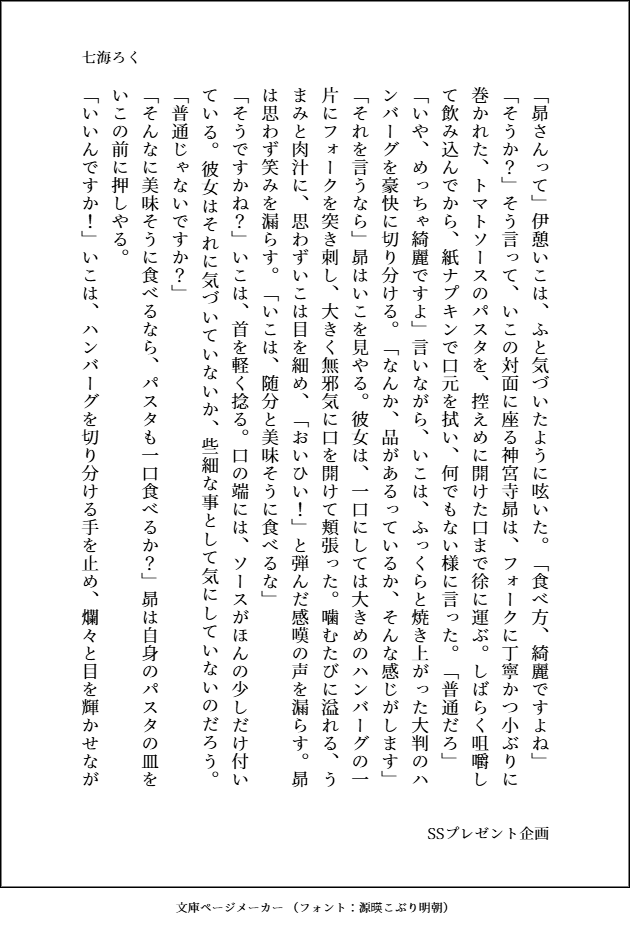 七海ろく
「昴さんって」伊憩いこは、ふと気づいたように呟いた。「食べ方、綺麗ですよね」
「そうか？」そう言って、いこの対面に座る神宮寺昴は、フォークに丁寧かつ小ぶりに
巻かれた、トマトソースのパスタを、控えめに開けた口まで徐に運ぶ。しばらく咀嚼し
て飲み込んでから、紙ナプキンで口元を拭い、何でもない様に言った。「普通だろ」
「いや、めっちゃ綺麗ですよ」言いながら、いこは、ふっくらと焼き上がった大判のハ
ンバーグを豪快に切り分ける。「なんか、品があるっているか、そんな感じがします」
「それを言うなら」昴はいこを見やる。彼女は、一口にしては大きめのハンバーグの一
片にフォークを突き刺し、大きく無邪気に口を開けて頬張った。噛むたびに溢れる、う
まみと肉汁に、思わずいこは目を細め、「おいひい！」と弾んだ感嘆の声を漏らす。昴
は思わず笑みを漏らす。「いこは、随分と美味そうに食べるな」
「そうですかね？」いこは、首を軽く捻る。口の端には、ソースがほんの少しだけ付い
ている。彼女はそれに気づいていないか、些細な事として気にしていないのだろう。
「普通じゃないですか？」
「そんなに美味そうに食べるなら、パスタも一口食べるか？」昴は自身のパスタの皿を
いこの前に押しやる。
「いいんですか！」いこは、ハンバーグを切り分ける手を止め、爛々と目を輝かせなが
SSプレゼント企画
文庫ページメーカー（フォント：源暎こぶり明朝）